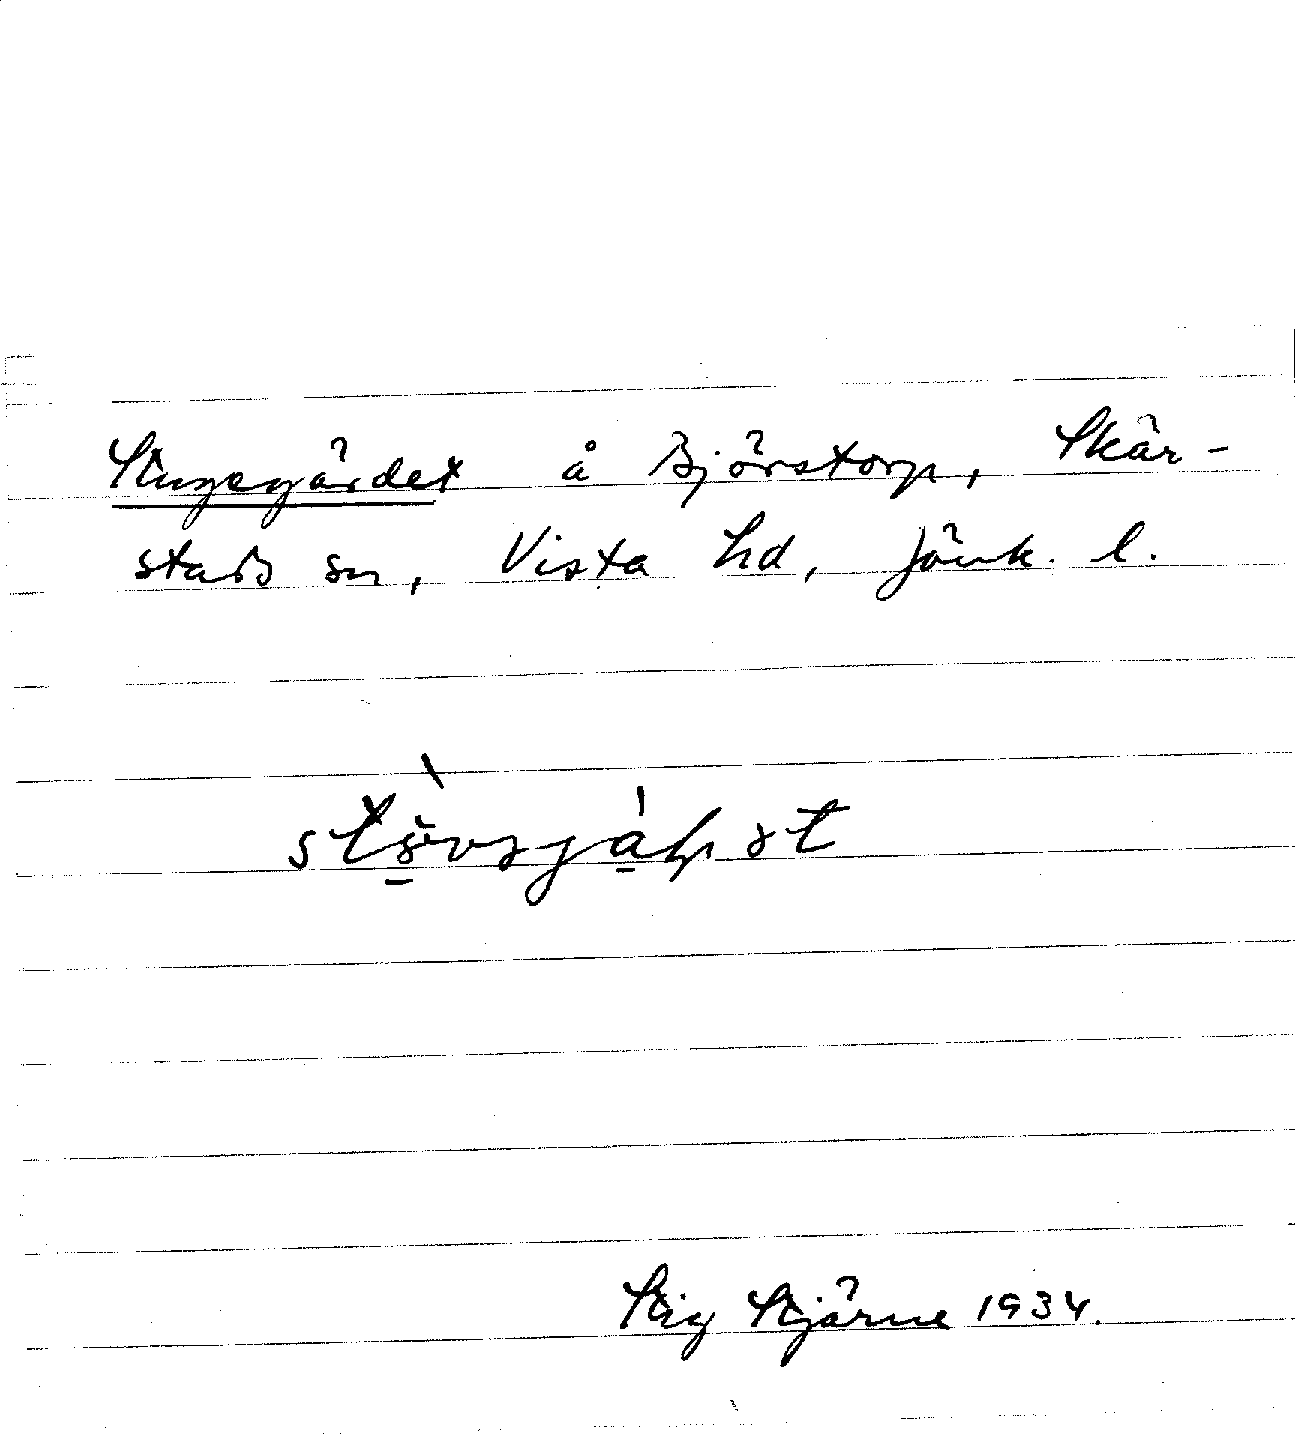 Stugegärdet å Björstorp, Skär-
stads sn, Vista hd, Jönk. l.
Stig Stjärne 1934.